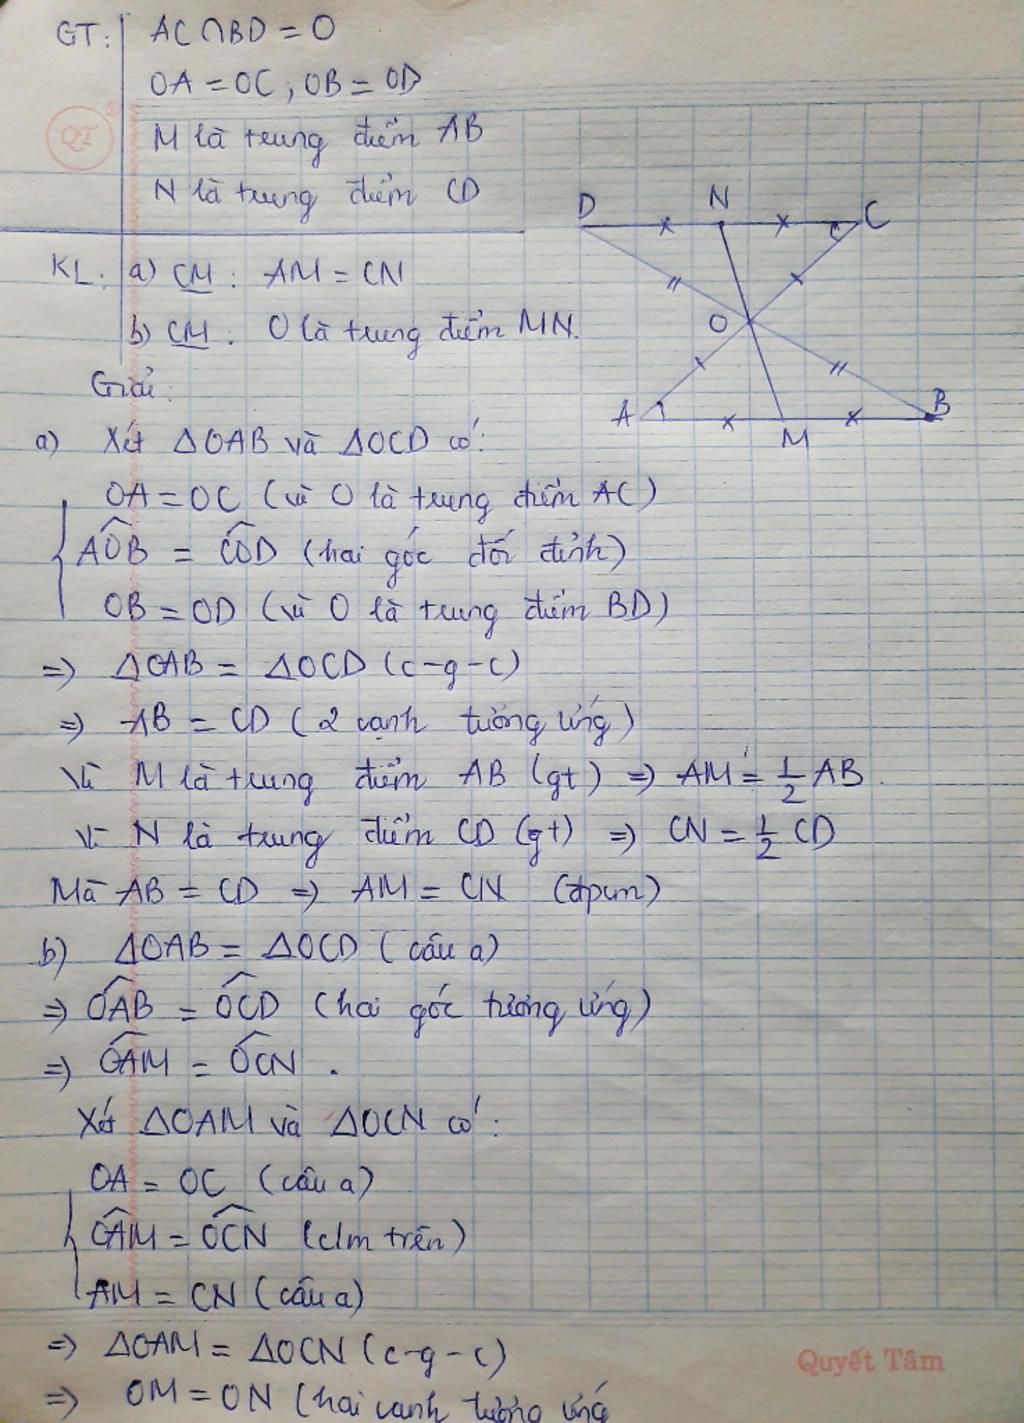 GT: AC∩BD = O
OA = OC ; OB = OD
QT
M là trung điểm AB
N là trung điểm CD
D N C
KL: a) CM : AM = CN
O
b) CM : O là trung điểm MN.
Giải :
A M B
a) Xét ΔOAB và ΔOCD có :
OA = OC (vì O là trung điểm AC)
AÔB = CÔD (hai góc đối đỉnh)
OB = OD (vì O là trung điểm BD)
=> ΔOAB = ΔOCD (c-g-c)
=> AB = CD (2 cạnh tương ứng)
Vì M là trung điểm AB (gt) => AM = 1/2 AB.
Vì N là trung điểm CD (gt) => CN = 1/2 CD
Mà AB = CD => AM = CN (đpcm)
b) ΔOAB = ΔOCD (câu a)
=> OÂB = OĈD (hai góc tương ứng)
=> OÂM = OĈN .
Xét ΔOAM và ΔOCN có :
OA = OC (câu a)
OÂM = OĈN (c/m trên)
AM = CN (câu a)
=> ΔOAM = ΔOCN (c-g-c)
Quyết Tâm
=> OM = ON (hai cạnh tương ứng